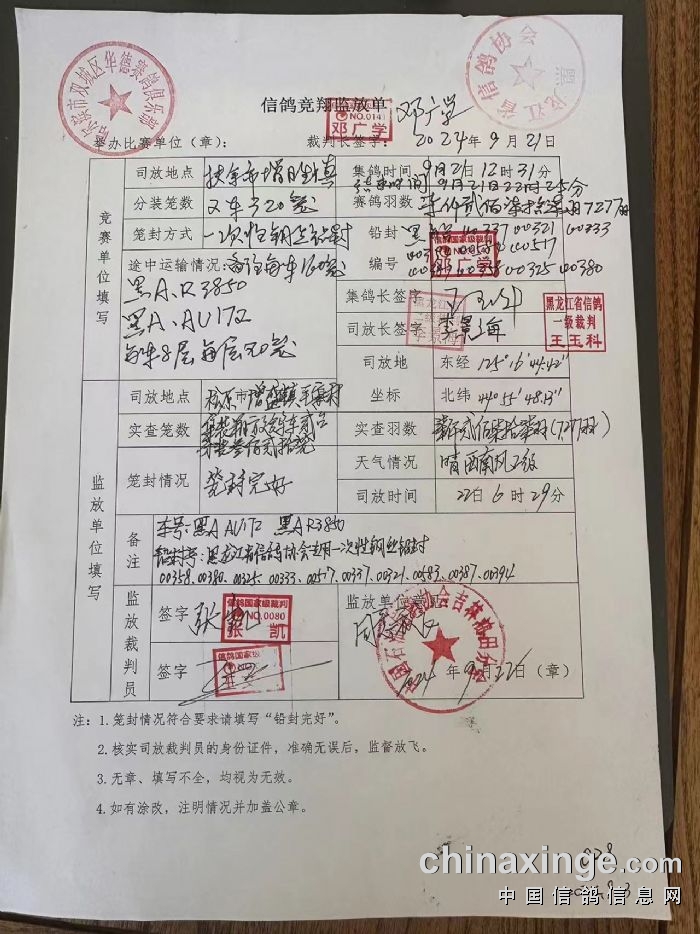 哈尔滨市双城区华德赛鸽俱乐部
黑龙江省信鸽协会
信鸽竞翔监放单
NO.0141
邓广学
邓广学
举办比赛单位（章）： 裁判长签字： 2024年9月21日
竞赛单位填写
司放地点 扶余市增盛镇 集鸽时间 9月21日12时31分
结束时间 9月21日22时25分
分装笼数 2车320笼 赛鸽羽数 7277羽
笼封方式 一次性钢丝铅封 铅封编号
00337 00321 00333
00517
00325 00380
信鸽国家级裁判
邓广学
途中运输情况：每车160笼
黑A.R3850
黑A.AU172
每车8层每层20笼
集鸽长签字
司放长签字 李景海
黑龙江省信鸽
一级裁判
王玉科
司放地坐标 东经 125°16′44.42″
北纬 44°55′48.13″
监放单位填写
司放地点 松原市增盛镇
实查笼数 实查羽数 (7277羽)
笼封情况 笼封完好 天气情况 晴 西南风2级
司放时间 22日6时29分
备注 车号：黑A AU172 黑AR3850
铅封号：黑龙江省信鸽协会专用一次性钢丝铅封
00358、00380、00325、00333、00517、00337、00321、00583、00387、00394
监放裁判员
签字 张凯
信鸽国家级裁判
NO.0080
张 凯
签字
信鸽国家级裁判
监放单位意见
2024年9月22日（章）
注：1.笼封情况符合要求请填写“铅封完好”。
2.核实司放裁判员的身份证件，准确无误后，监督放飞。
3.无章、填写不全，均视为无效。
4.如有涂改，注明情况并加盖公章。
chinaxinge.com
中国信鸽信息网